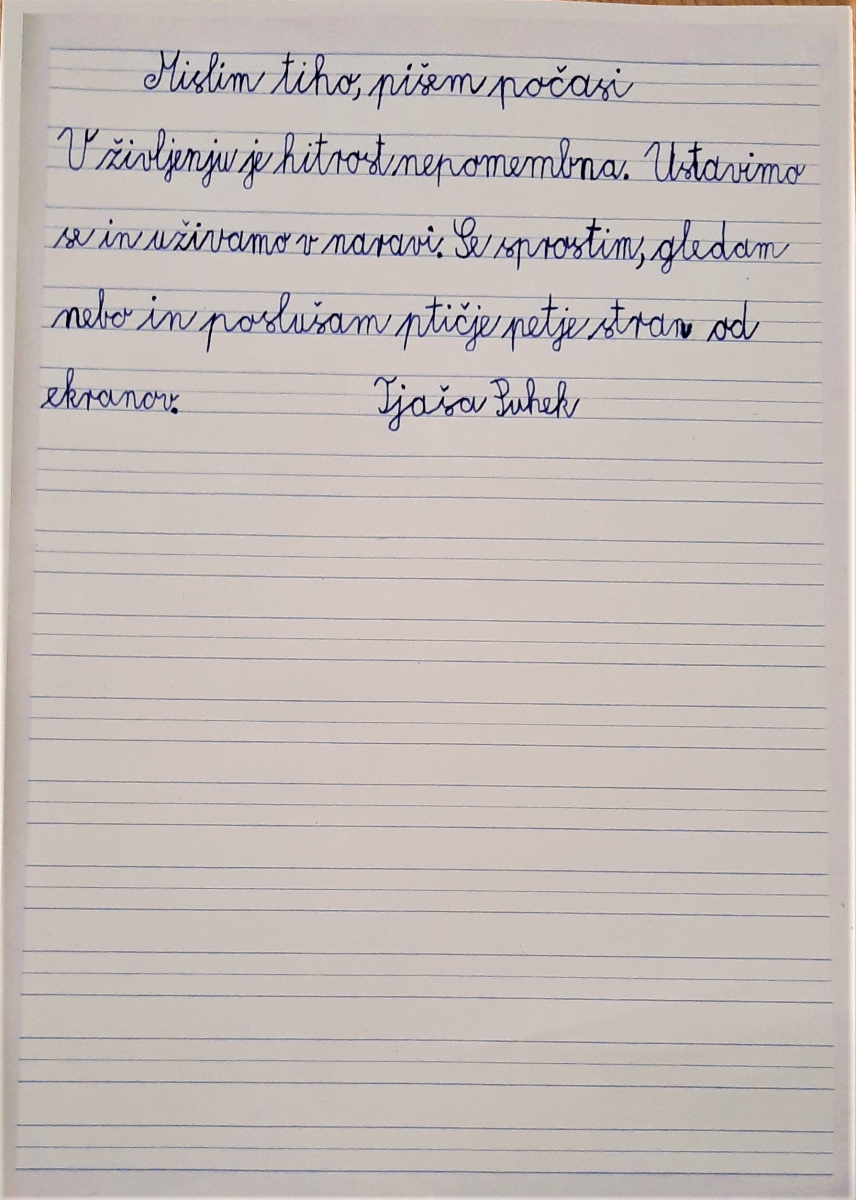 Mislim tiho, pišem počasi
V življenju je hitrost nepomembna. Ustavimo
se in uživamo v naravi. Se sprostim, gledam
nebo in poslušam ptičje petje stran od
ekranov. Tjaša Puhek